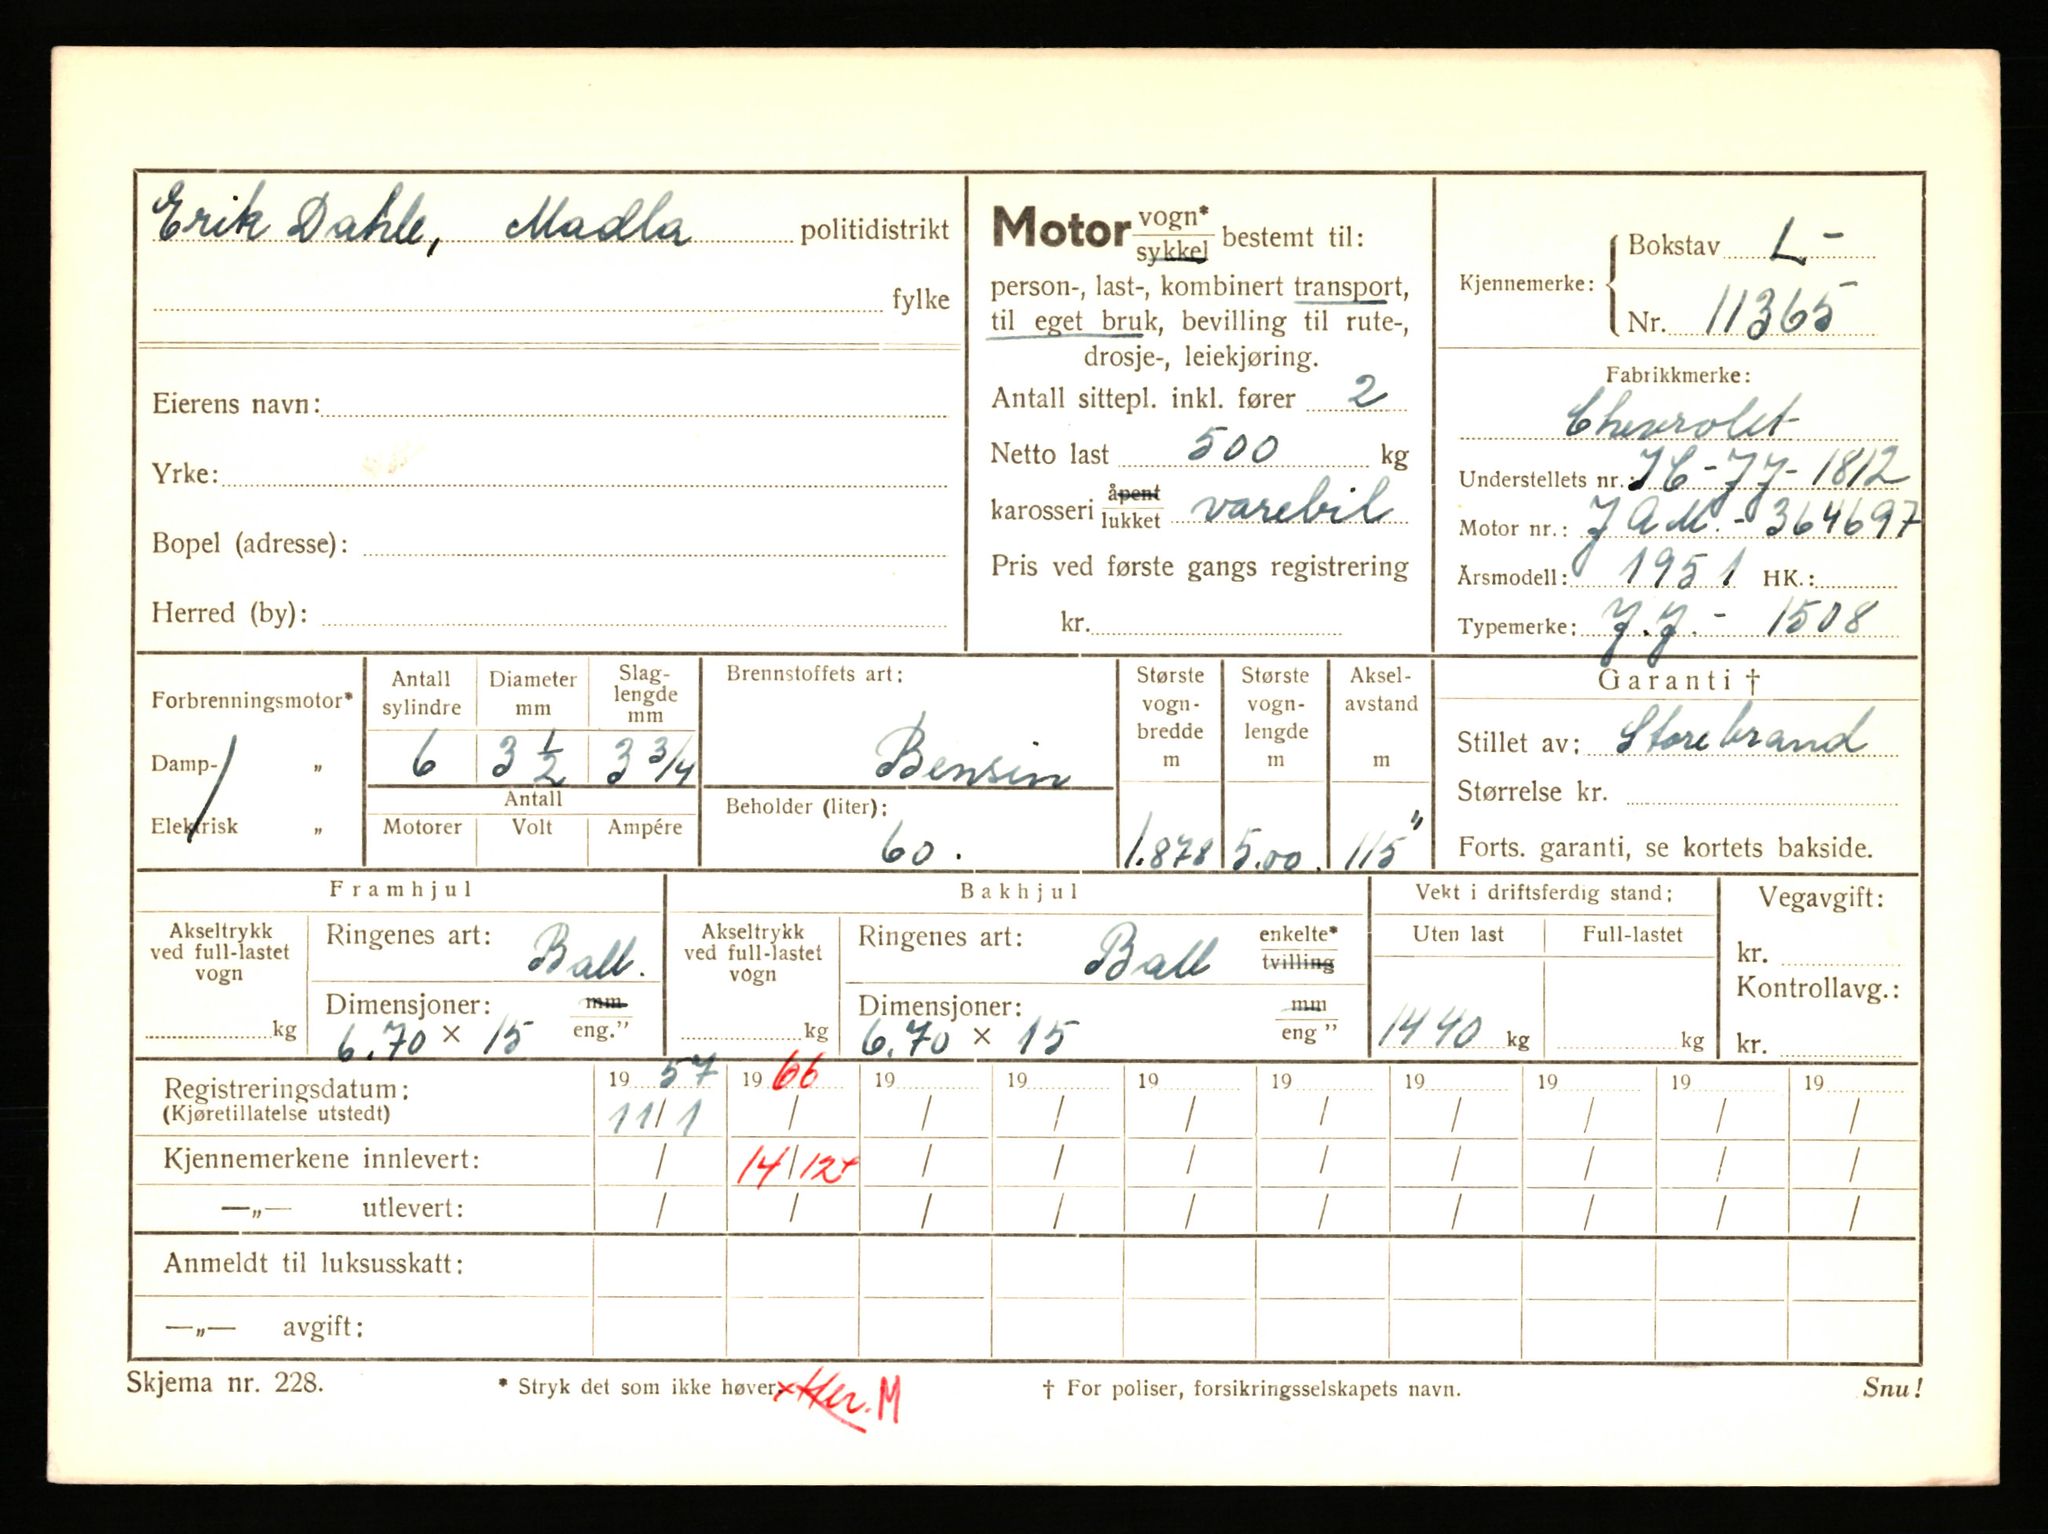 Erik Dahle, Madla politidistrikt
fylke
Eierens navn:
Yrke:
Bopel (adresse):
Herred (by):
Motor vogn* / sykkel bestemt til:
person-, last-, kombinert transport,
til eget bruk, bevilling til rute-,
drosje-, leiekjøring.
Antall sittepl. inkl. fører 2
Netto last 500 kg
karosseri åpent / lukket varebil
Pris ved første gangs registrering
kr.
Kjennemerke: Bokstav L-
Nr. 11365
Fabrikkmerke:
Chevrolet
Understellets nr.: JC-JJ-1812
Motor nr.: JAM.-364697
Årsmodell: 1951 HK.:
Typemerke: J.J.-1508
Forbrenningsmotor*
Damp- „
Elektrisk „
Antall sylindre 6
Diameter mm 3 1/2
Slaglengde mm 3 3/4
Antall
Motorer Volt Ampére
Brennstoffets art:
Bensin
Beholder (liter):
60.
Største vognbredde m 1.878
Største vognlengde m 5.00.
Akselavstand m 115"
Garanti †
Stillet av: Storebrand
Størrelse kr.
Forts. garanti, se kortets bakside.
Framhjul
Akseltrykk ved full-lastet vogn
kg
Ringenes art: Ball.
Dimensjoner: mm / eng."
6.70 × 15
Bakhjul
Akseltrykk ved full-lastet vogn
kg
Ringenes art: Ball enkelte* / tvilling
Dimensjoner: mm / eng "
6.70 × 15
Vekt i driftsferdig stand:
Uten last Full-lastet
1440 kg kg
Vegavgift:
kr.
Kontrollavg.:
kr.
Registreringsdatum: 1957 1966 19 19 19 19 19 19 19 19
(Kjøretillatelse utstedt) 11/1 / / / / / / / / /
Kjennemerkene innlevert: / 14/12+ / / / / / / / /
—„— utlevert: / / / / / / / / / /
Anmeldt til luksusskatt:
—„— avgift:
Skjema nr. 228. * Stryk det som ikke høver. × Her. M † For poliser, forsikringsselskapets navn. Snu!